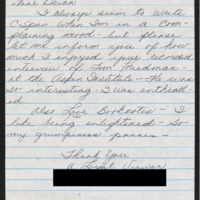 Dear Brian
I always seem to write
C-Span when I'm in a com-
plaining mood - but please
let me inform you of how
much I enjoyed your recorded
interview of Tom Friedman -
at the Aspen Institute - He was
so interesting I was enthrall-
ed
Also Love Booknotes - I
like being enlightened - So
my grumpiness passes -
Thank You
A Loyal Viewer